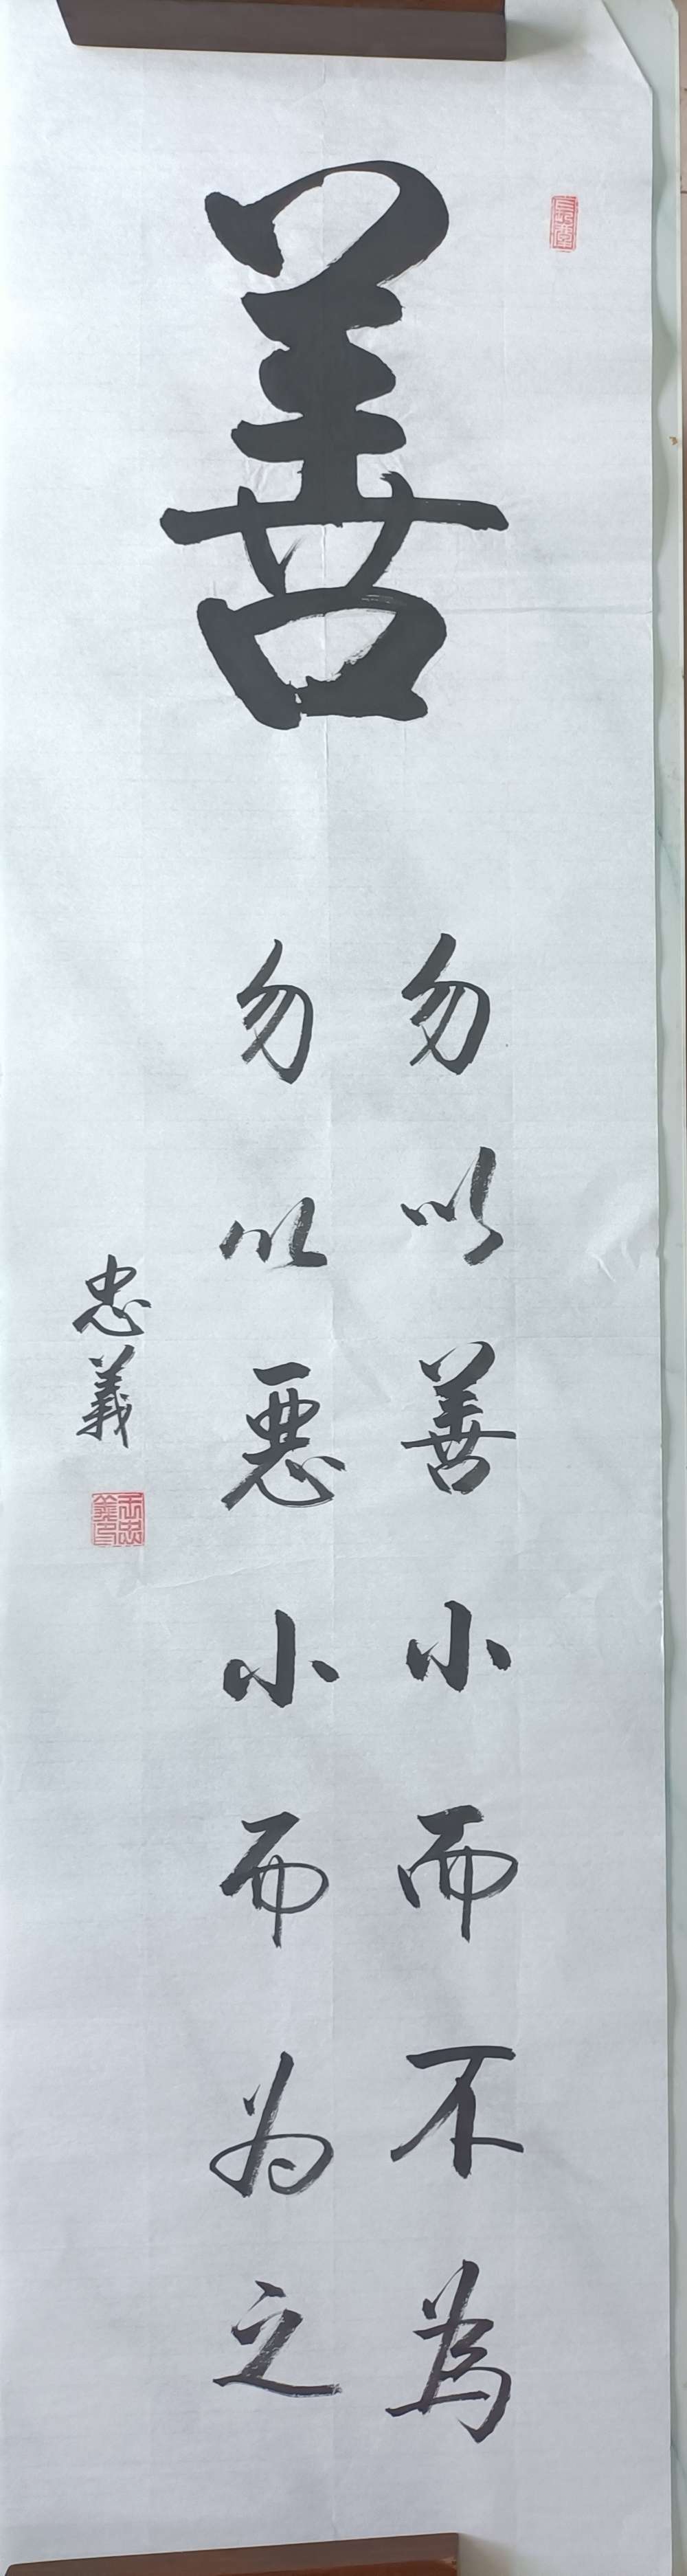 善
勿以善小而不為
勿以惡小而为之
忠義